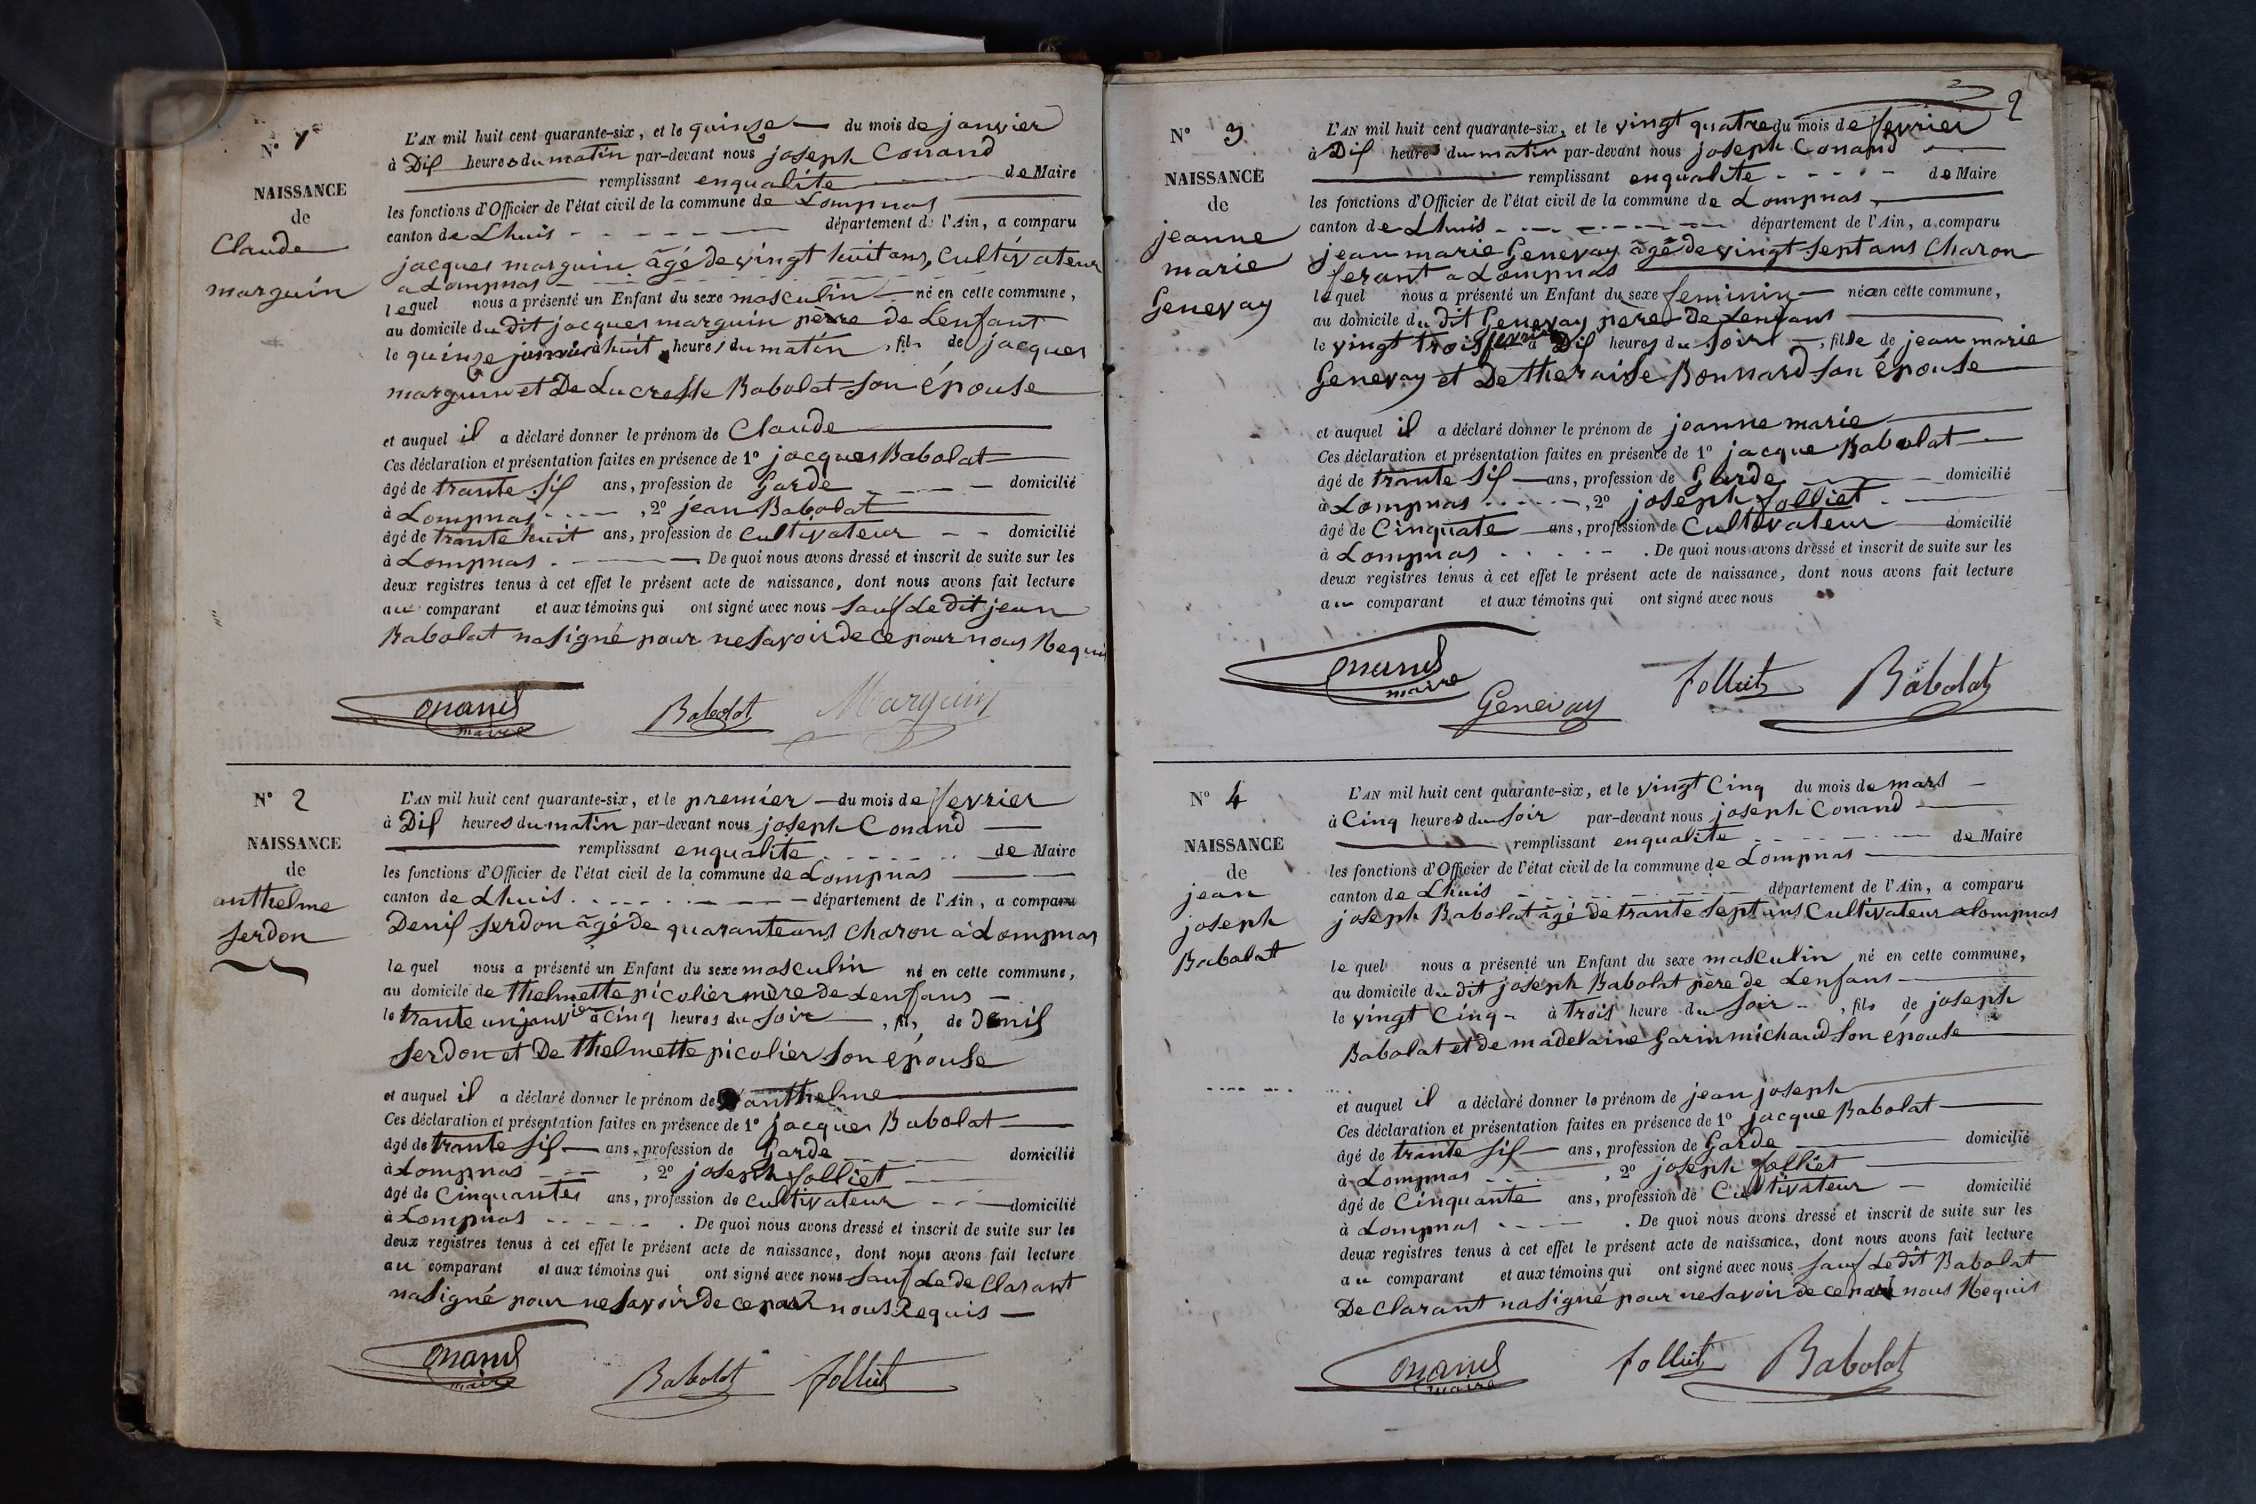 N° 1
NAISSANCE
de
Claude
marguin
L'AN mil huit cent quarante-six, et le quinze — du mois de janvier
à Dix heures du matin par-devant nous joseph Conand
remplissant enqualite de Maire
les fonctions d'Officier de l'état civil de la commune de Lompnas
canton de Lhuis département de l'Ain, a comparu
jacques marguin âgé de vingt huit ans, Cultivateur
a Lompnas
lequel nous a présenté un Enfant du sexe masculin né en cette commune,
au domicile du dit jacques marguin perre de Lenfant
le quinze janvier à huit heures du matin, fils de jacques
marguin et De Lucresse Babolat son épouse
et auquel il a déclaré donner le prénom de Claude
Ces déclaration et présentation faites en présence de 1° jacques Babolat
âgé de trante six ans, profession de Garde domicilié
à Lompnas, 2° jean Babolat
âgé de trante huit ans, profession de Cultivateur domicilié
à Lompnas. De quoi nous avons dressé et inscrit de suite sur les
deux registres tenus à cet effet le présent acte de naissance, dont nous avons fait lecture
au comparant et aux témoins qui ont signé avec nous sauf Le dit jean
Babolat na signé pour ne savoir de ce pour nous Requi
Conand maire Babolat Marguin
N° 2
NAISSANCE
de
anthelme
serdon
L'AN mil huit cent quarante-six, et le premier — du mois de fevrier
à Dix heures du matin par-devant nous joseph Conand
remplissant enqualite de Maire
les fonctions d'Officier de l'état civil de la commune de Lompnas
canton de Lhuis département de l'Ain, a comparu
Denis serdon âgé de quarante ans Charon à Lompnas
lequel nous a présenté un Enfant du sexe masculin né en cette commune,
au domicile de thelmette picolier mère de Lenfans
le trante un janvier à Cinq heures du soir, fils de Denis
serdon et De thelmette picolier son épouse
et auquel il a déclaré donner le prénom de anthelme
Ces déclaration et présentation faites en présence de 1° jacques Babolat
âgé de trante six ans, profession de Garde domicilié
à Lompnas, 2° joseph folliet
âgé de Cinquantes ans, profession de Cultivateur domicilié
à Lompnas. De quoi nous avons dressé et inscrit de suite sur les
deux registres tenus à cet effet le présent acte de naissance, dont nous avons fait lecture
au comparant et aux témoins qui ont signé avec nous sauf Le de Clarant
na signé pour ne savoir de ce par nous Requis
Conand maire Babolat folliet
2
N° 3
NAISSANCE
de
jeanne
marie
Genevay
L'AN mil huit cent quarante-six, et le vingt quatre du mois de fevrier
à Dix heures du matin par-devant nous joseph Conand
remplissant enqualite de Maire
les fonctions d'Officier de l'état civil de la commune de Lompnas
canton de Lhuis département de l'Ain, a comparu
jean marie Genevay âgé de vingt sept ans Charon
ferant a Lompnas
lequel nous a présenté un Enfant du sexe feminin né en cette commune,
au domicile du dit Genevay pere de Lenfans
le vingt trois fevrier à Dix heures du soir, fille de jean marie
Genevay et De theraise Bonnard son épouse
et auquel il a déclaré donner le prénom de jeanne marie
Ces déclaration et présentation faites en présence de 1° jacque Babolat
âgé de trante six ans, profession de Garde domicilié
à Lompnas, 2° joseph folliet
âgé de Cinquate ans, profession de Cultivateur domicilié
à Lompnas. De quoi nous avons dressé et inscrit de suite sur les
deux registres tenus à cet effet le présent acte de naissance, dont nous avons fait lecture
au comparant et aux témoins qui ont signé avec nous
Conand maire Genevay folliet Babolat
N° 4
NAISSANCE
de
jean
joseph
Babolat
L'AN mil huit cent quarante-six, et le vingt Cinq du mois de mars
à Cinq heures du soir par-devant nous joseph Conand
remplissant enqualite de Maire
les fonctions d'Officier de l'état civil de la commune de Lompnas
canton de Lhuis département de l'Ain, a comparu
joseph Babolat âgé de trante sept ans Cultivateur a Lompnas
lequel nous a présenté un Enfant du sexe masculin né en cette commune,
au domicile du dit joseph Babolat père de Lenfans
le vingt Cinq à trois heure du soir, fils de joseph
Babolat et de madelaine Garin michaud son épouse
et auquel il a déclaré donner le prénom de jean joseph
Ces déclaration et présentation faites en présence de 1° jacque Babolat
âgé de trante six ans, profession de Garde domicilié
à Lompnas, 2° joseph folliet
âgé de Cinquante ans, profession de Cultivateur domicilié
à Lompnas. De quoi nous avons dressé et inscrit de suite sur les
deux registres tenus à cet effet le présent acte de naissance, dont nous avons fait lecture
au comparant et aux témoins qui ont signé avec nous sauf Le dit Babolat
De Clarant na signé pour ne savoir de ce par nous Requis
Conand maire folliet Babolat